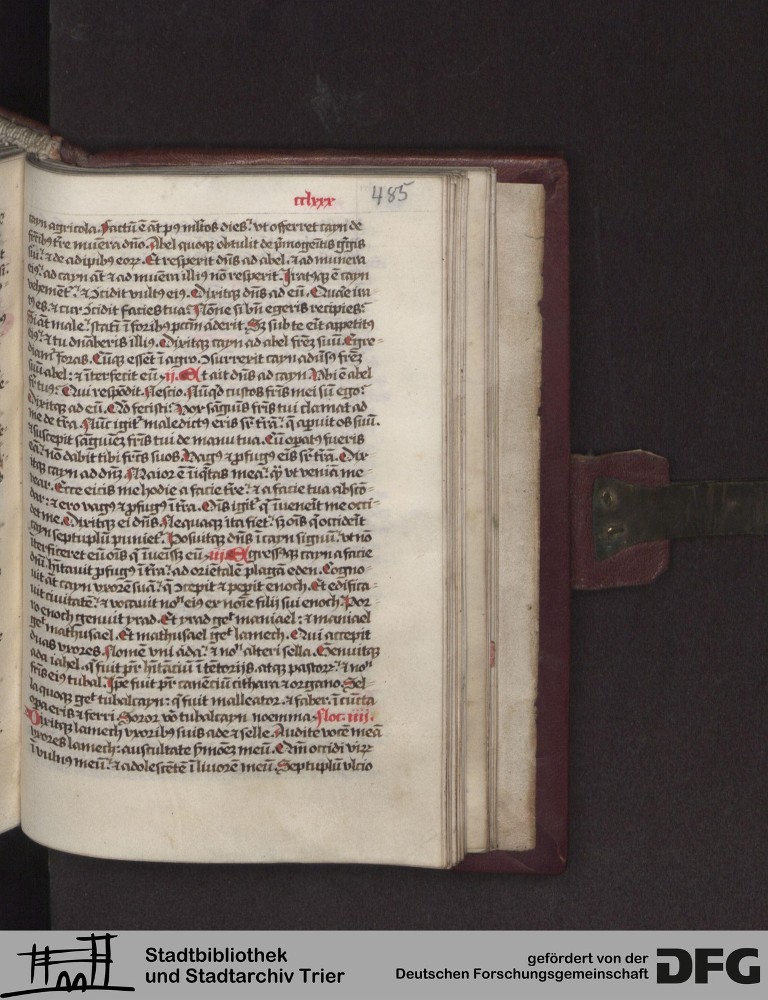 cclxxx 485
cayn agricola. Factū ē āt p9 ml̄tos dies: vt offerret cayn de
fructib9 tr̄e mūera dn̄o. Abel quoq3 obtulit de p̄mogeīt9 gḡis
sui: & de adipib9 eor. Et resperit dn̄s ad abel. & ad munera
ei9: ad cayn āt & ad mūera illi9 nō resperit. Iratq3 ē cayn
vehemēt: & ↄcidit vult9 ei9. Dixitq3 dn̄s ad eū. Quāe ira-
t9 es. & cur ↄcidit facies tua: Nōne si bn̄ egeris recipies:
sī āt male: statī ī forib9 pctm̄ aderit. Sz sub te eit appetit9
ei9: & tu dn̄aberis illi9. Dixitq3 cayn ad abel frēz suū. Egre-
diam foras. Cūq3 essēt ī agro. ↄsurrexit cayn adūs9 frēz
suū abel: & īterfecit eū. ii. Et ait dn̄s ad cayn. Vbi ē abel
fr̄ tu9: Qui respōdit. Nescio. Nūqd custos fr̄is mei sū ego:
Dixitq3 ad eū. Qd fecisti: Vox sāguīs fr̄is tui clamat ad
me de tr̄a. Nūc igit maledict9 eris sr̄ trā. q̄ apuit os suū.
& suscepit sāguīez fr̄is tui de manu tua. Cū opat9 fueris
eā: nō dabit tibi fruct9 suos. Vag9 & ꝓfug9 eis sr̄ trā. Dix-
itq3 cayn ad dn̄z. Maior ē īiq̄tas mea: q̄ vt veniā me-
rear. Ecce eicis me hodie a facie tr̄e. & a facie tua abscō-
dar: & ero vag9 & ꝓfug9 ī trā. Oīs igit q̄ īueneīt me occi-
det me. Dixitq3 ei dn̄s. Neq̄uaq̄ ita fiet: sz oīs q̄ occideīt
cayn septuplū puniet. Posuitq3 dn̄s ī cayn signū: vt nō
īterficeret eū oīs q̄ īueissz eū. iii. Egressq3 cayn a facie
dn̄i. hītauit ꝓfug9 ī trā: ad orietālē plagā eden. Cogno-
uit āt cayn vxorē suā: q̄ ↄcepit & pepit enoch. Et edifica-
uit ciuitatē: & vocauit nom ei9 ex noīe filii sui enoch. Por-
ro enoch genuit yrad. Et yrad get maniael: & maniael
get mathusael. Et mathusael get lamech. Qui accepit
duas vxores. Nomē vni ada: & nom alteri sella. Genuitq3
ada iahel. q̄ fuit pr̄ hītāciū ī tētorijs. atq3 pastor: & nom
fr̄is ei9 tubal. Ipe fuit pr̄ canēciū cithara & organo. Sel-
la quoq3 get tubalcayn: q̄ fuit malleator. & faber. ī cūcta
opa eris & ferri. Soror vo tubalcayn noemma. Noc. iiii.
Dixitq3 lamech vxorib9 suis ade & selle. Audite vocē meā
vxores lamech: auscultate s̄mōez meū. Qm̄ occidi vir
ī vuln9 meū: & adolescētē ī liuorē meū. Septuplū vlcio
Stadtbibliothek
und Stadtarchiv Trier
gefördert von der
Deutschen Forschungsgemeinschaft DFG